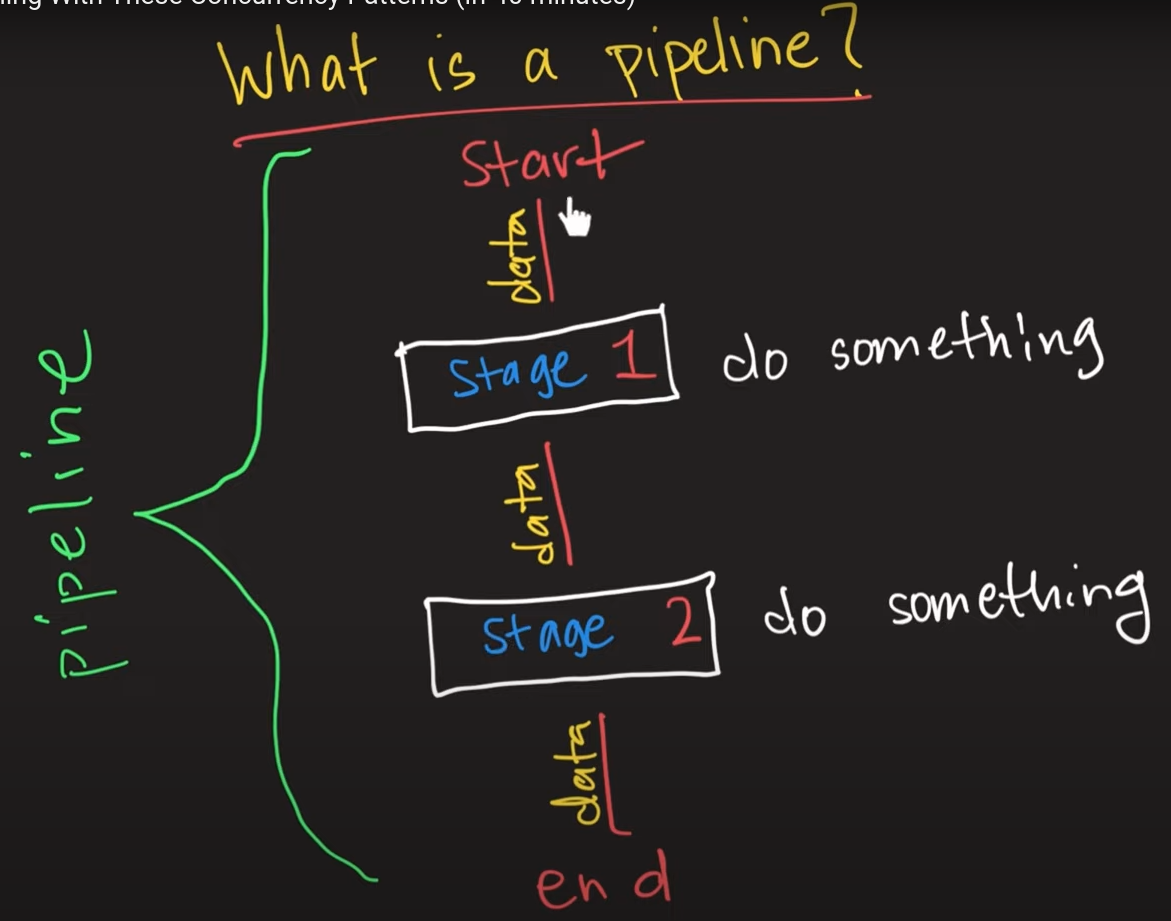 ing With These Concurrency Patterns (in 40 minutes)
What is a pipeline?
Start
data
Stage 1 do something
data
pipeline
Stage 2 do something
data
end